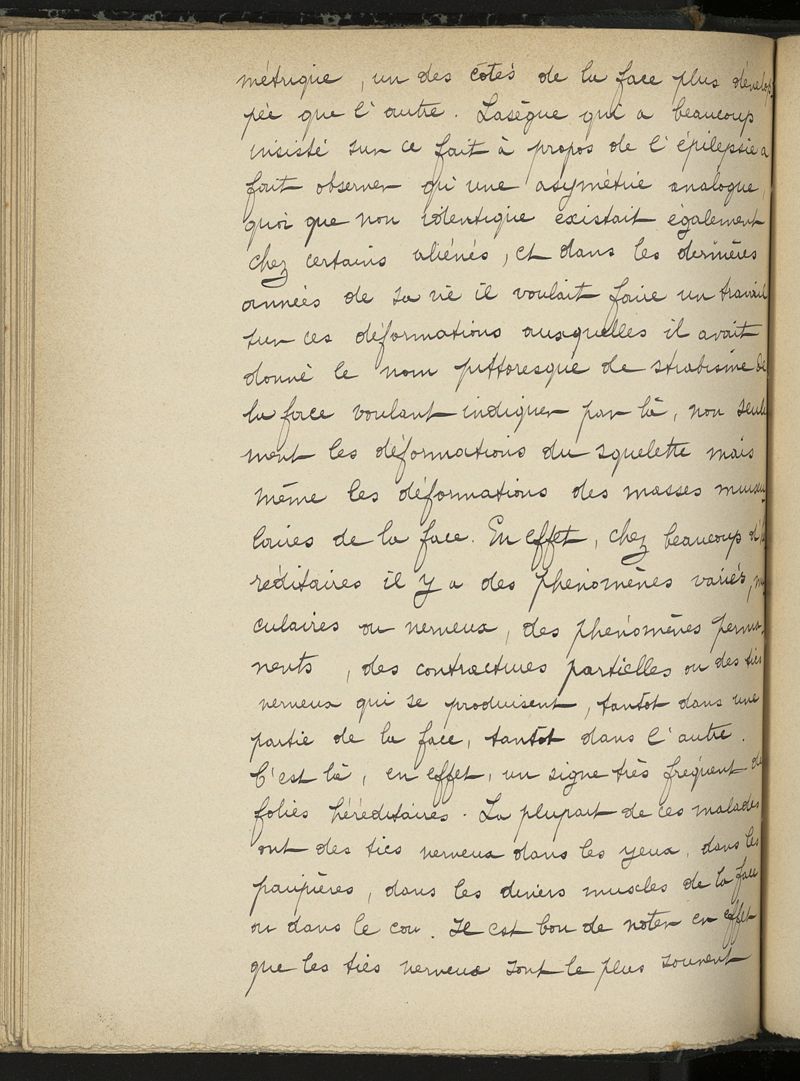 métrique, un des côtés de la face plus dévelop
pée que l'autre. Lasègue qui a beaucoup
insisté sur ce fait à propos de l'épilepsie a
fait observer qu'une asymétrie analogue,
quoi que non identique existait également
chez certains aliénés, et dans les dernières
années de sa vie il voulait faire un travail
sur ces déformations auxquelles il avait
donné le nom pittoresque de strabisme de
la face voulant indiquer par là, non seule
ment les déformations du squelette mais
même les déformations des masses muscu
laires de la face. En effet, chez beaucoup d'hé
réditaires il y a des phénomènes variés, mus
culaires ou nerveux, des phénomènes perma
nents, des contractures partielles ou des tics
nerveux qui se produisent, tantôt dans une
partie de la face, tantôt dans l'autre.
C'est là, en effet, un signe très fréquent de
folies héréditaires. La plupart de ces malades
ont des tics nerveux dans les yeux, dans les
paupières, dans les divers muscles de la face
ou dans le cou. Il est bon de noter en effet
que les tics nerveux sont le plus souvent